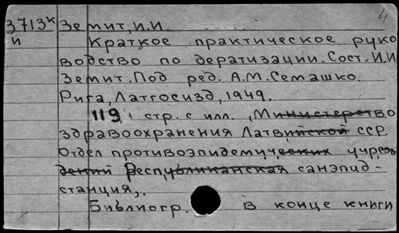 4
3713к Земит, И.И.
и Краткое практическое руко
водство по дератизации. Сост. И.И
Земит. Под ред. А.М. Семашко.
Рига, Латгосизд, 1949.
119 стр. с илл. , Министерство
здравоохранения Латвийской ССР.
Отдел противоэпидемических учреж
дений Республиканская санэпид-
станция,.
Библиогр. в конце книги